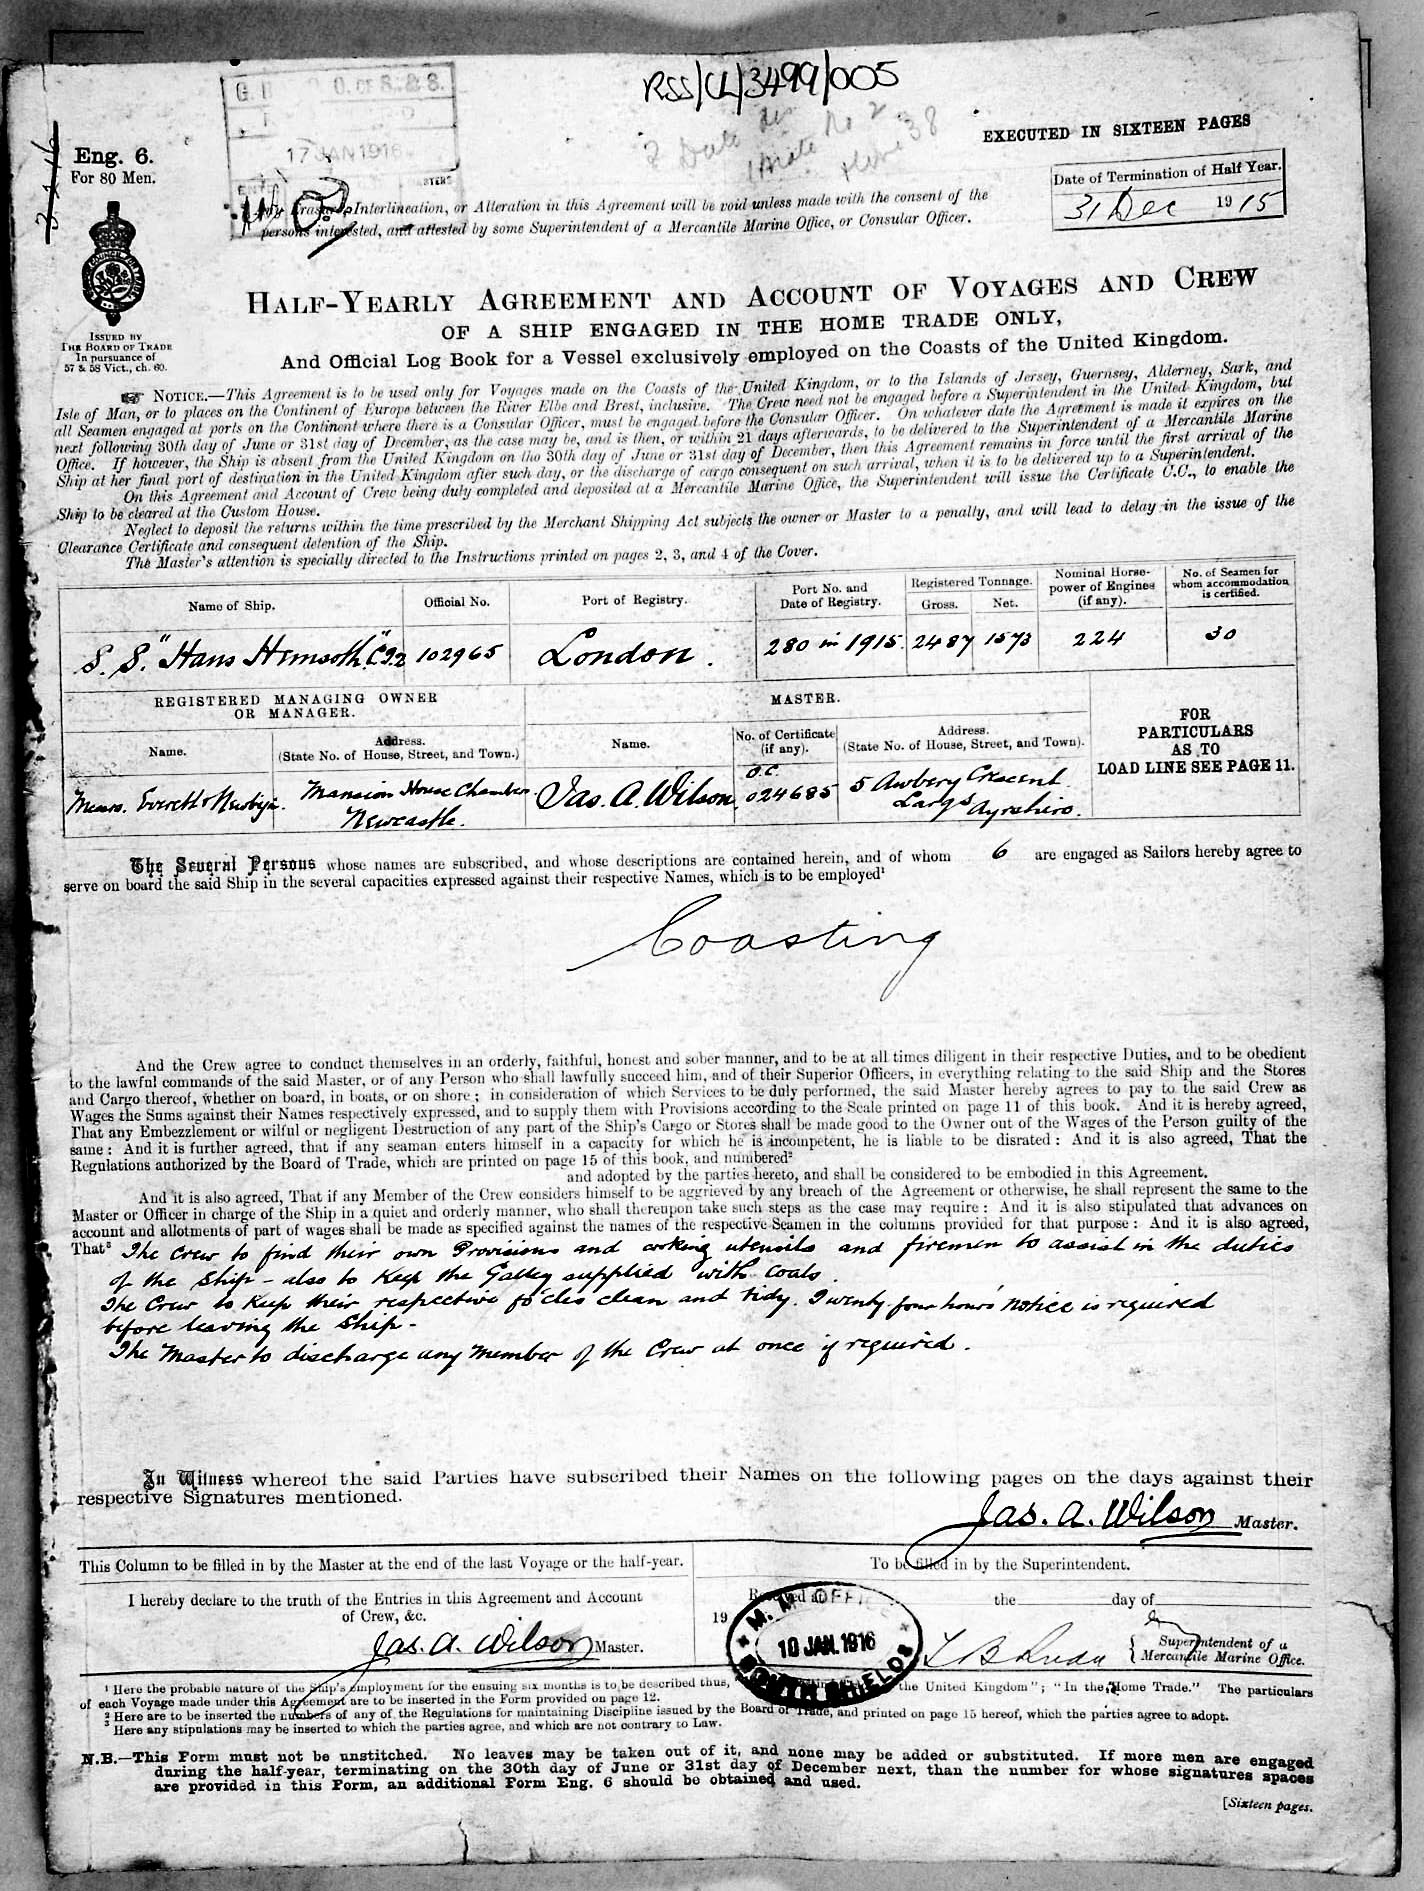 RSS/CL/3499/005
EXECUTED IN SIXTEEN PAGES
Eng. 6.
For 80 Men.
17 JAN 1916
Date of Termination of Half Year.
31 Dec 1915
Any Erasure, Interlineation, or Alteration in this Agreement will be void unless made with the consent of the
persons interested, and attested by some Superintendent of a Mercantile Marine Office, or Consular Officer.
ISSUED BY
THE BOARD OF TRADE
In pursuance of
57 & 58 Vict., ch. 60.
HALF-YEARLY AGREEMENT AND ACCOUNT OF VOYAGES AND CREW
OF A SHIP ENGAGED IN THE HOME TRADE ONLY,
And Official Log Book for a Vessel exclusively employed on the Coasts of the United Kingdom.
NOTICE.—This Agreement is to be used only for Voyages made on the Coasts of the United Kingdom, or to the Islands of Jersey, Guernsey, Alderney, Sark, and
Isle of Man, or to places on the Continent of Europe between the River Elbe and Brest, inclusive. The Crew need not be engaged before a Superintendent in the United Kingdom, but
all Seamen engaged at ports on the Continent where there is a Consular Officer, must be engaged before the Consular Officer. On whatever date the Agreement is made it expires on the
next following 30th day of June or 31st day of December, as the case may be, and is then, or within 21 days afterwards, to be delivered to the Superintendent of a Mercantile Marine
Office. If however, the Ship is absent from the United Kingdom on the 30th day of June or 31st day of December, then this Agreement remains in force until the first arrival of the
Ship at her final port of destination in the United Kingdom after such day, or the discharge of cargo consequent on such arrival, when it is to be delivered up to a Superintendent.
On this Agreement and Account of Crew being duly completed and deposited at a Mercantile Marine Office, the Superintendent will issue the Certificate C.C., to enable the
Ship to be cleared at the Custom House.
Neglect to deposit the returns within the time prescribed by the Merchant Shipping Act subjects the owner or Master to a penalty, and will lead to delay in the issue of the
Clearance Certificate and consequent detention of the Ship.
The Master's attention is specially directed to the Instructions printed on pages 2, 3, and 4 of the Cover.
Name of Ship. Official No. Port of Registry. Port No. and Date of Registry. Registered Tonnage. Gross. Net. Nominal Horse-power of Engines (if any). No. of Seamen for whom accommodation is certified.
S.S. "Hans Hemsoth" 102965 London. 280 in 1915. 2487 1573 224 30
REGISTERED MANAGING OWNER
OR MANAGER.
MASTER.
FOR
PARTICULARS
AS TO
LOAD LINE SEE PAGE 11.
Name. Address. (State No. of House, Street, and Town.) Name. No. of Certificate (if any). Address. (State No. of House, Street, and Town).
Messrs. Everett & Newbigin. Mansion House Chambers Newcastle. Jas. A. Wilson O.C. 024685 5 Awbery Crescent Largs Ayrshire.
The Several Persons whose names are subscribed, and whose descriptions are contained herein, and of whom 6 are engaged as Sailors hereby agree to
serve on board the said Ship in the several capacities expressed against their respective Names, which is to be employed¹
Coasting
And the Crew agree to conduct themselves in an orderly, faithful, honest and sober manner, and to be at all times diligent in their respective Duties, and to be obedient
to the lawful commands of the said Master, or of any Person who shall lawfully succeed him, and of their Superior Officers, in everything relating to the said Ship and the Stores
and Cargo thereof, whether on board, in boats, or on shore; in consideration of which Services to be duly performed, the said Master hereby agrees to pay to the said Crew as
Wages the Sums against their Names respectively expressed, and to supply them with Provisions according to the Scale printed on page 11 of this book. And it is hereby agreed,
That any Embezzlement or wilful or negligent Destruction of any part of the Ship's Cargo or Stores shall be made good to the Owner out of the Wages of the Person guilty of the
same: And it is further agreed, that if any seaman enters himself in a capacity for which he is incompetent, he is liable to be disrated: And it is also agreed, That the
Regulations authorized by the Board of Trade, which are printed on page 15 of this book, and numbered²
and adopted by the parties hereto, and shall be considered to be embodied in this Agreement.
And it is also agreed, That if any Member of the Crew considers himself to be aggrieved by any breach of the Agreement or otherwise, he shall represent the same to the
Master or Officer in charge of the Ship in a quiet and orderly manner, who shall thereupon take such steps as the case may require: And it is also stipulated that advances on
account and allotments of part of wages shall be made as specified against the names of the respective Seamen in the columns provided for that purpose: And it is also agreed,
That³ The Crew to find their own Provisions and cooking utensils and firemen to assist in the duties
of the Ship – also to Keep the Galley supplied with coals.
The Crew to Keep their respective fo'cles clean and tidy. Twenty four hours' notice is required
before leaving the Ship –
The Master to discharge any member of the Crew at once if required.
In Witness whereof the said Parties have subscribed their Names on the following pages on the days against their
respective Signatures mentioned.
Jas. A. Wilson Master.
This Column to be filled in by the Master at the end of the last Voyage or the half-year.
To be filled in by the Superintendent.
I hereby declare to the truth of the Entries in this Agreement and Account
of Crew, &c.
Jas. A. Wilson Master.
Received at the day of
19
M. M. OFFICE
10 JAN. 1916
SOUTH SHIELDS
Superintendent of a
Mercantile Marine Office.
¹ Here the probable nature of the Ship's employment for the ensuing six months is to be described thus, the United Kingdom"; "In the Home Trade." The particulars
of each Voyage made under this Agreement are to be inserted in the Form provided on page 12.
² Here are to be inserted the numbers of any of the Regulations for maintaining Discipline issued by the Board of Trade, and printed on page 15 hereof, which the parties agree to adopt.
³ Here any stipulations may be inserted to which the parties agree, and which are not contrary to Law.
N.B.—This Form must not be unstitched. No leaves may be taken out of it, and none may be added or substituted. If more men are engaged
during the half-year, terminating on the 30th day of June or 31st day of December next, than the number for whose signatures spaces
are provided in this Form, an additional Form Eng. 6 should be obtained and used.
[Sixteen pages.